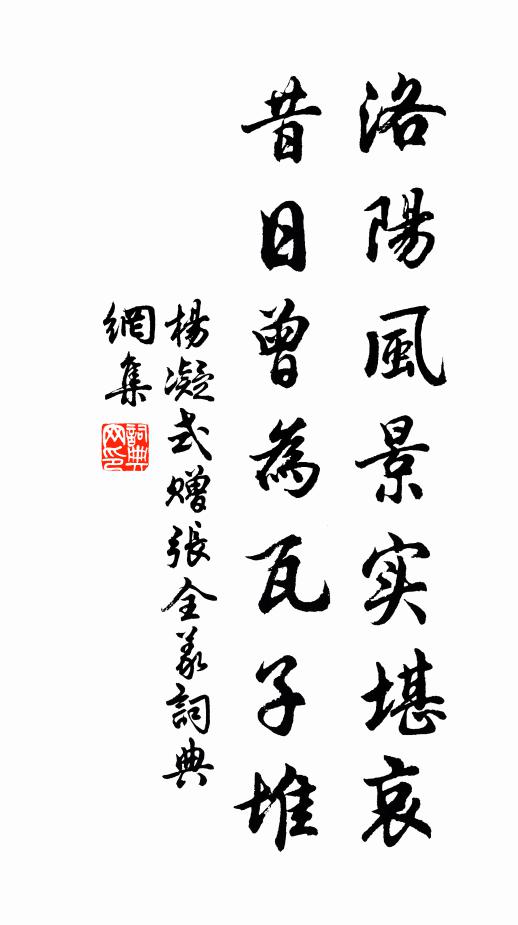 洛陽風景实堪哀
昔日曾為瓦子堆
楊凝式赠張全義詞典
網集
詞典
网印